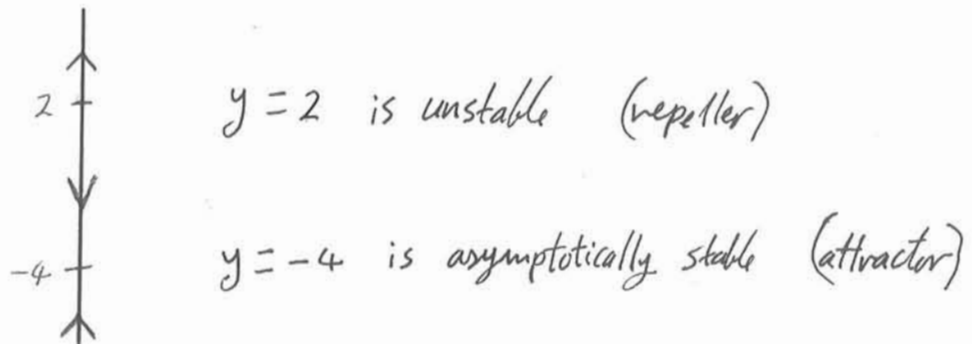 2 y = 2 is unstable (repeller)
-4 y = -4 is asymptotically stable (attractor)